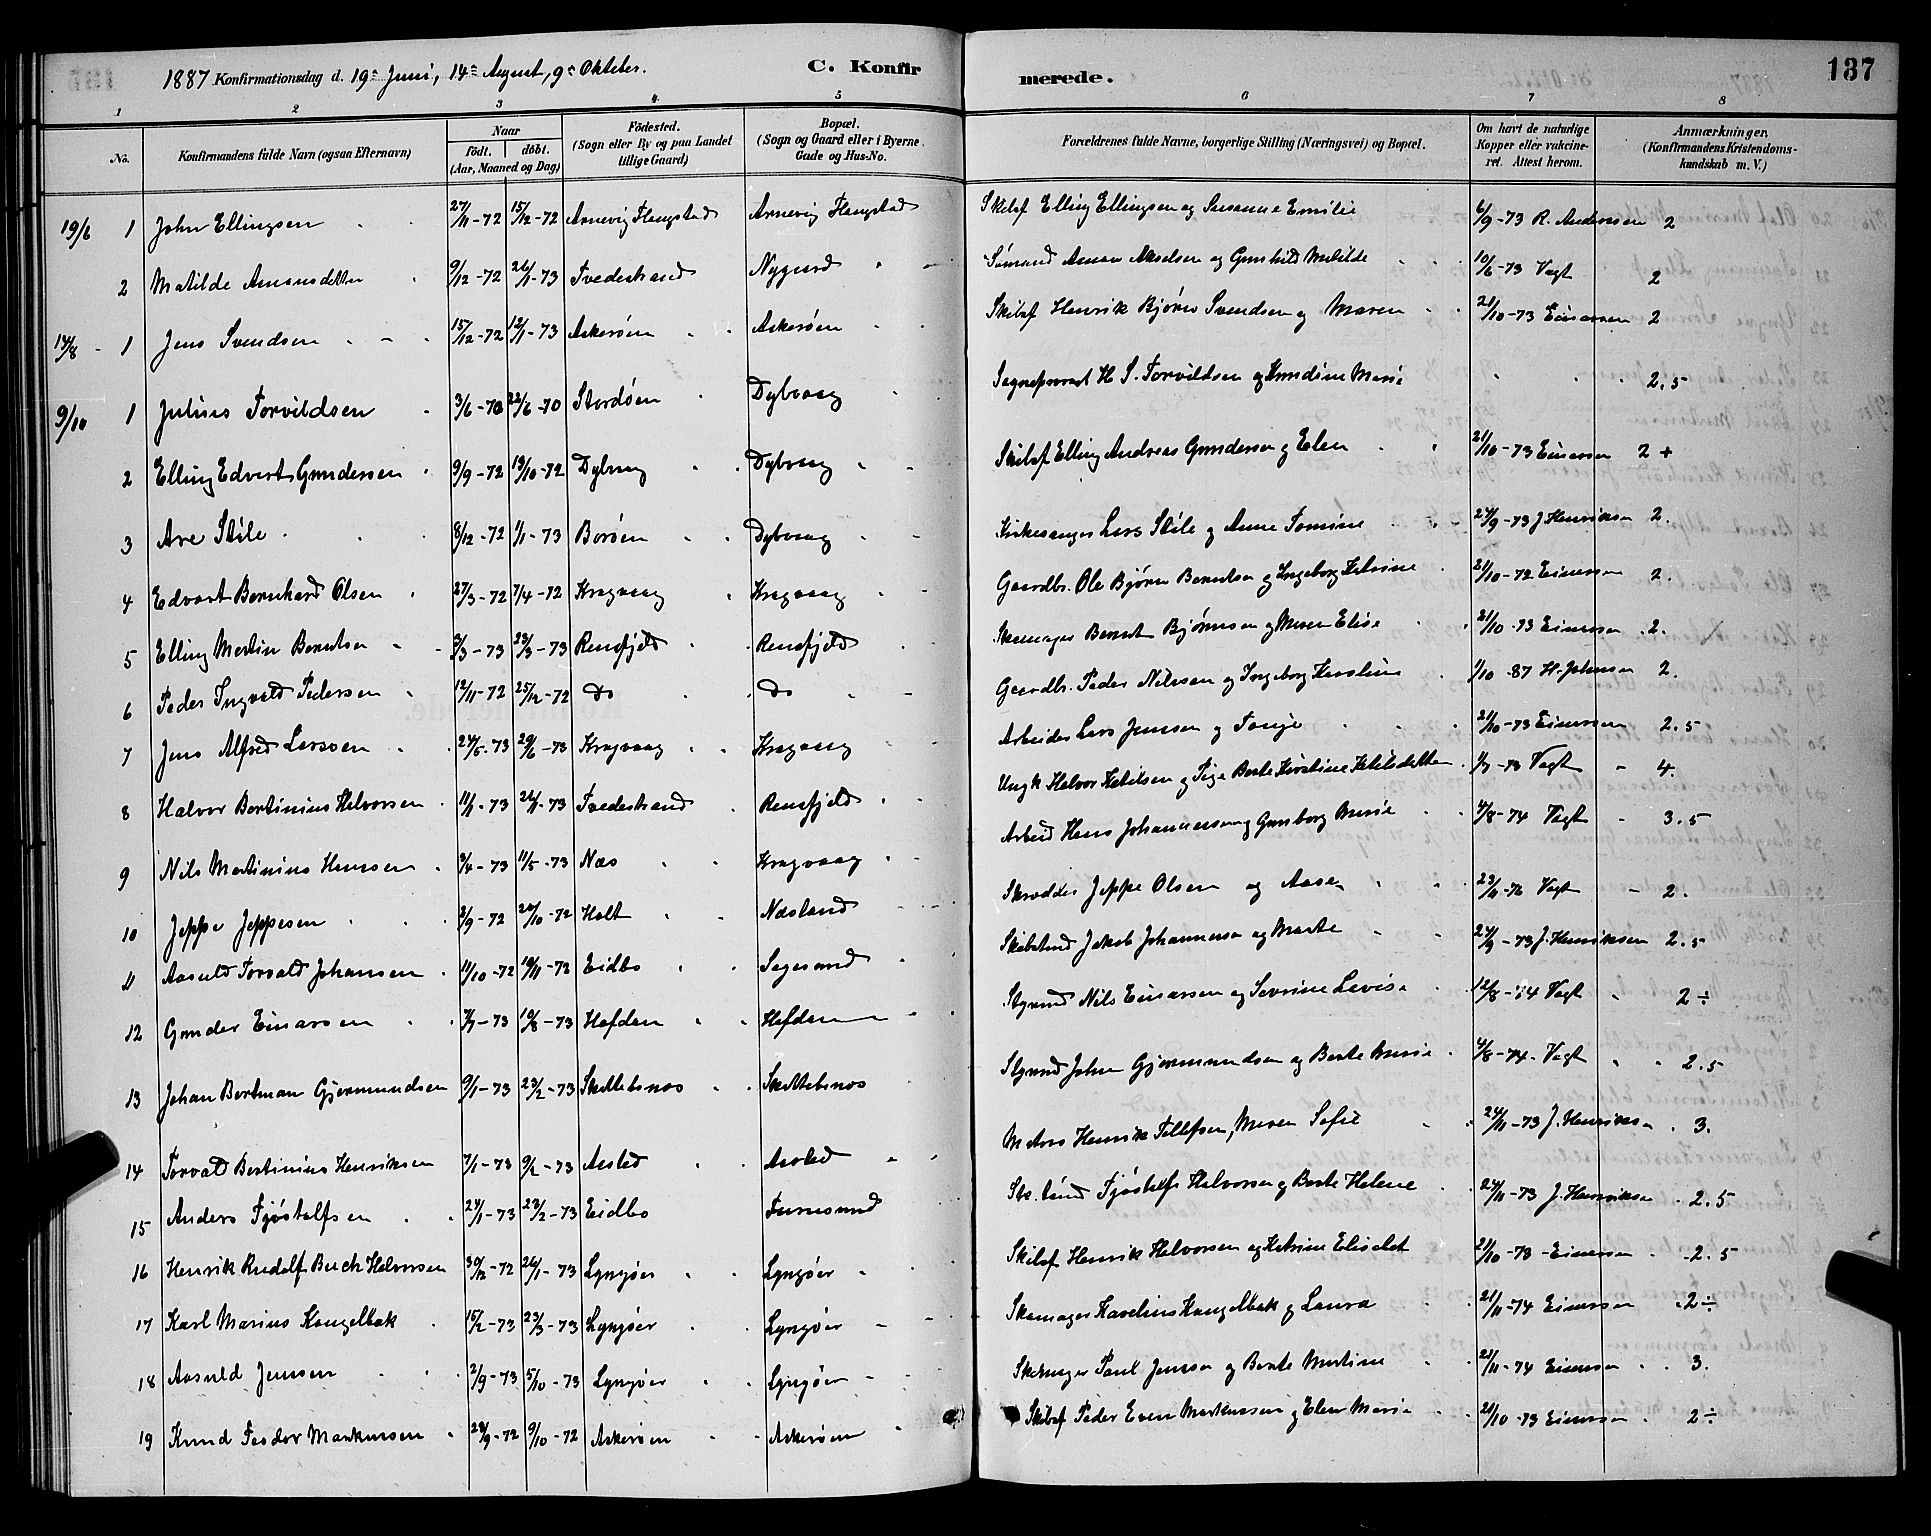 1887 Konfirmationsdag d. 19de Juni, 14de August, 9de Oktober. C. Konfirmerede. 137
1 2 3 4 5 6 7 8
No. Konfirmandens fulde Navn (ogsaa Efternavn) Naar født. døbt. (Aar, Maaned og Dag) Födested. (Sogn eller By og paa Landet tillige Gaard) Bopæl. (Sogn og Gaard eller i Byerne Gade og Hus-No. Forældrenes fulde Navne, borgerlige Stilling (Næringsvei) og Bopæl. Om havt de naturlige Kopper eller vakcineret. Attest herom. Anmærkninger, (Konfirmandens Kristendomskundskab m. V.)
19/6 1 John Ellingsen 27/11-72 15/12-72 Arnevig Flangstad Arnevig Flangstad Skibsf Elling Ellingsen og Susanne Emilie 6/9-73 R. Andersen 2
2 Matilde Amansdatter 9/12-72 26/1-73 Tvedestrand Nygurd Sömand Aman Akselsen og Gunhild Matilde 10/6-73 Vogt 2
14/8 1 Jens Svendsen 15/12-72 12/1-73 Askerøen Askerøen Skibsf Henrik Bjørn Svendsen og Maren 21/10-73 Einersen 2
9/10 1 Julius Torvildsen 3/6-70 22/6-70 Stordöen Dybvaag Sogneprest H S. Torvildsen og Hendine Marie 2.5
2 Elling Edvart Gundersen 9/9-72 13/10-72 Dybvaag Dybvaag Skibsf Elling Andreas Gundersen og Elen 21/10-73 Einersen 2+
3 Are Stöle 8/12-72 1/1-73 Borøen Dybvaag Kirkesanger Lars Stöle og Anne Tomine 24/9-73 J Henriksen 2.
4 Edvart Bernhard Olsen 27/3-72 7/4-72 Kragvaag Kragvaag Gaardbr. Ole Bjørn Berntsen og Ingeborg Katrine 21/10-72 Einersen 2.
5 Elling Martin Berntsen 3/3-73 23/3-73 Rensfjeld Rensfjeld Skomager Bernt Bjørnsen og Maren Elise 21/10-73 Einersen 2.
6 Peder Ingvald Pedersen 12/11-72 25/12-72 do do Gaardbr. Peder Nilssen og Ingeborg Karoline 1/10-87 H. Johnsen 2.
7 Jens Alfred Larssen 24/5-73 29/6-73 Kragvaag Kragvaag Arbeider Lars Jensen og Tonje 21/10-73 Einersen 2.5
8 Halvor Bertinius Halvorsen 11/1-73 26/1-73 Tvedestrand Rensfjeld Ungk Halvor Ketilsen og Pige Berte Kirstine Ketilsdatter Vogt 4.
9 Nils Martinius Hansen 3/4-73 11/5-73 Næs Kragvaag Arbeid Hans Johannesen og Gunborg Marie 4/8-74 Vogt 3.5
10 Jeppe Jeppesen 3/9-72 20/10-72 Holt Næsland Skredder Jeppe Olsen og Aase Vogt 2.
11 Aasuld Torvald Johansen 11/10-72 10/11-72 Eidbo Sagesund Skibstmd Jakob Johannesen og Marte 24/9-73 J. Henriksen 2.5
12 Gunder Einarsen 7/7-73 10/8-73 Hofden Hofden Strgmd Nils Einarsen og Severine Lovise 12/8-74 Vogt 2÷
13 Johan Bertman Gjermundsen 9/1-73 23/2-73 Skottebnæs Skottebnæs Strgmd John Gjermundsen og Berte Marie 4/8-74 Vogt 2.5
14 Torvald Bertinius Henriksen 7/1-73 9/2-73 Aasted Aasted Matros Henrik Tellefsen, Maren Sofie 24/11-73 J. Henriksen 3.
15 Anders Fjöstolfsen 24/1-73 23/2-73 Eidbo Furesund Sk.tömd Fjöstolf Halvorsen og Berte Helene 24/11-73 J. Henriksen 2.5
16 Henrik Rudolf Buch Halvorsen 30/12-72 26/1-73 Lyngøer Lyngøer Skibsf Henrik Halvorsen og Katrine Elisabet 21/10-73 Einersen 2.5
17 Karl Marius Kongelbæk 15/2-73 23/3-73 Lyngøer Lyngøer Skomager Karelius Kongelbæk og Laura 21/11-74 Einersen 2÷
18 Aasuld Jensen 2/9-73 5/10-73 Lyngøer Lyngøer Skomager Paul Jensen og Berte Martine 21/11-74 Einersen 3.
19 Knud Teodor Markussen 28/9-72 9/10-72 Askerøen Askerøen Skibsf Peder Even Markussen og Elen Marie 21/10-73 Einersen 2÷